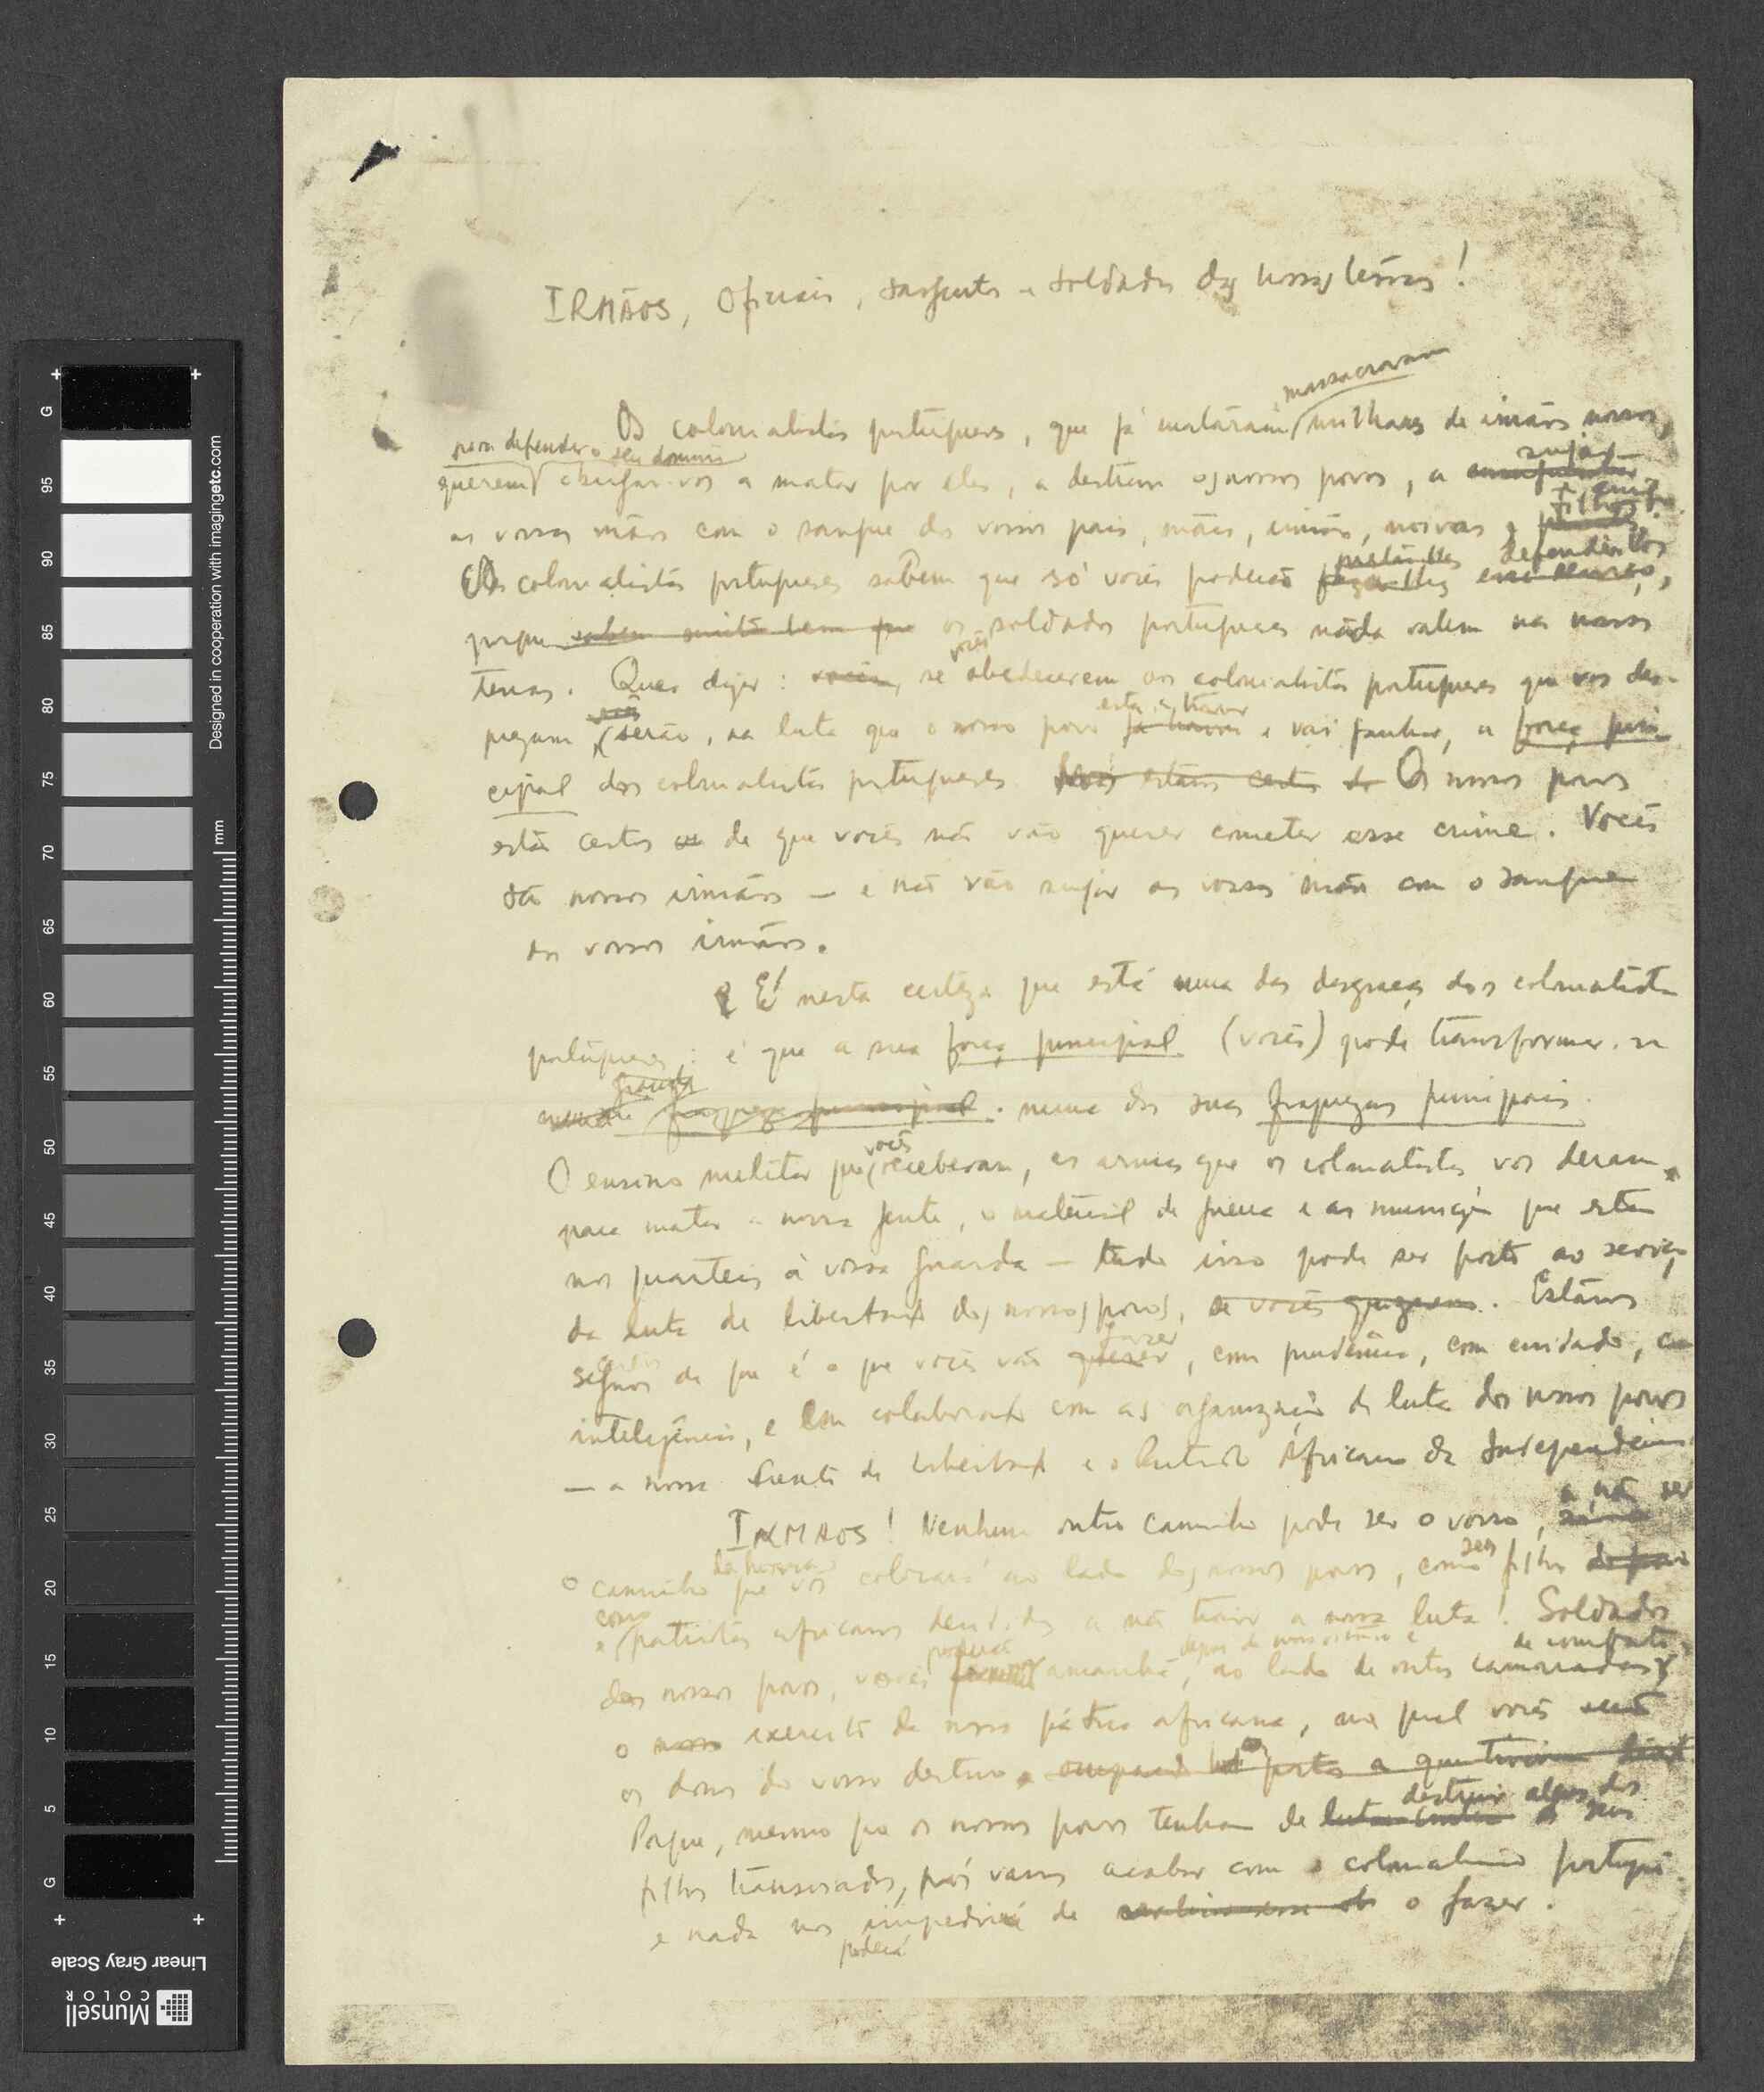 IRMÃOS, Oficiais, sargentos e soldados das nossas terras!
massacraram
Os colonialistas portugueses, que já mataram milhares de irmãos nossos,
para defender o seu domínio
sujar
querem obrigar-vos a matar por eles, a destruir os nossos povos, a
filhos
as vossas mãos com o sangue dos vossos pais, mães, irmãos, noivas e
defendê-los
Os colonialistas portugueses sabem que só vocês poderão
porque sabem muito bem que os soldados portugueses nada valem nas nossas
vocês
terras. Quer dizer: vocês, se obedecerem aos colonialistas portugueses que vos des-
está a travar
prezam serão, na luta que o nosso povo já travou e vai ganhar, a força prin-
cipal dos colonialistas portugueses. Nós estamos certos de Os nossos povos
estão certos de que vocês não vão querer cometer esse crime. Vocês
são nossos irmãos — e não vão sujar as vossas mãos com o sangue
dos vossos irmãos.
É nesta certeza que está uma das desgraças dos colonialistas
portugueses: é que a sua força principal (vocês) pode transformar-se
grande
numa fraqueza principal. numa das suas fraquezas principais.
vocês
O ensino militar que receberam, as armas que os colonialistas vos deram
para matar a nossa gente, o material de guerra e as munições que estão
nos quarteis à vossa guarda — tudo isso pode ser posto ao serviço
da luta de libertação dos nossos povos, se vocês quizerem. Estamos
certos fazer
seguros de que é o que vocês vão querer, com prudência, com cuidado, com
inteligência, e em colaboração com as organizações de luta dos nossos povos
— a nossa Frente de Libertação e o Partido Africano da Independência
a não ser
IRMÃOS! Nenhum outro caminho pode ser o vosso,
da honra seus
o caminho que vos colocará ao lado dos nossos povos, como filhos
como
e patriotas africanos decididos a não trair a nossa luta! Soldados
de combate
dos nossos povos, vocês amanhã, ao lado de outros camaradas
o nosso exército da nossa pátria africana, na qual vocês serão
os donos do vosso destino, ocupando postos a que tiverem direito
destruir alguns dos
Porque, mesmo que os nossos povos tenham de lutar contra os seus
filhos transviados, nós vamos acabar com o colonialismo português
e nada nos impedirá de o fazer.
poderá